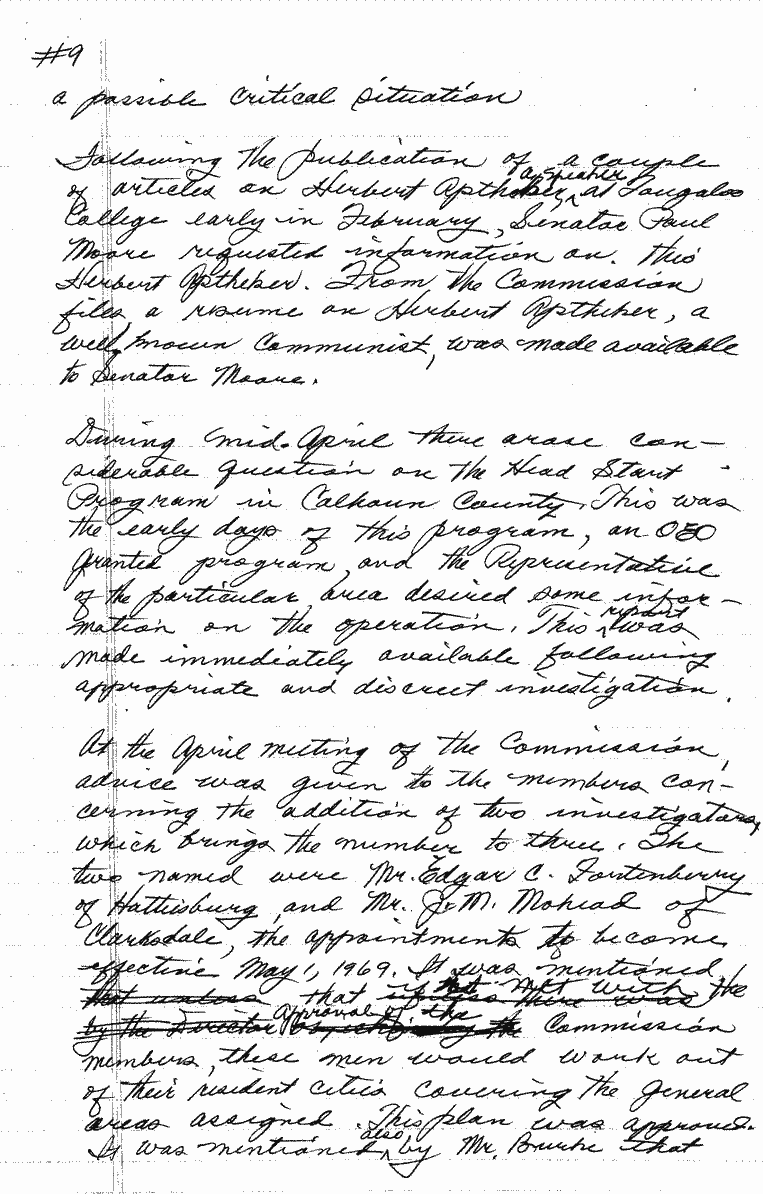 #9
a possible critical situation
Following the publication of a couple
of articles on Herbert Aptheker, a speaker at Tougaloo
College early in February, Senator Paul
Moore requested information on this
Herbert Aptheker. From the Commission
files a resume on Herbert Aptheker, a
well known Communist, was made available
to Senator Moore.
During mid-April there arose con-
siderable question on the Head Start
Program in Calhoun County. This was
the early days of this program, an OEO
granted program, and the Representative
of the particular area desired some infor-
mation on the operation. This report was
made immediately available following
appropriate and discreet investigation.
At the April meeting of the Commission,
advice was given to the members con-
cerning the addition of two investigators,
which brings the number to three. The
two named were Mr. Edgar C. Fortenberry
of Hattiesburg and Mr. J. M. Mohead of
Clarksdale, the appointments to become
effective May 1, 1969. It was mentioned
that unless that if met with the
by the Director approval of the Commission
members, these men would work out
of their resident cities covering the general
areas assigned. This plan was approved.
It was mentioned also by Mr. Burke that